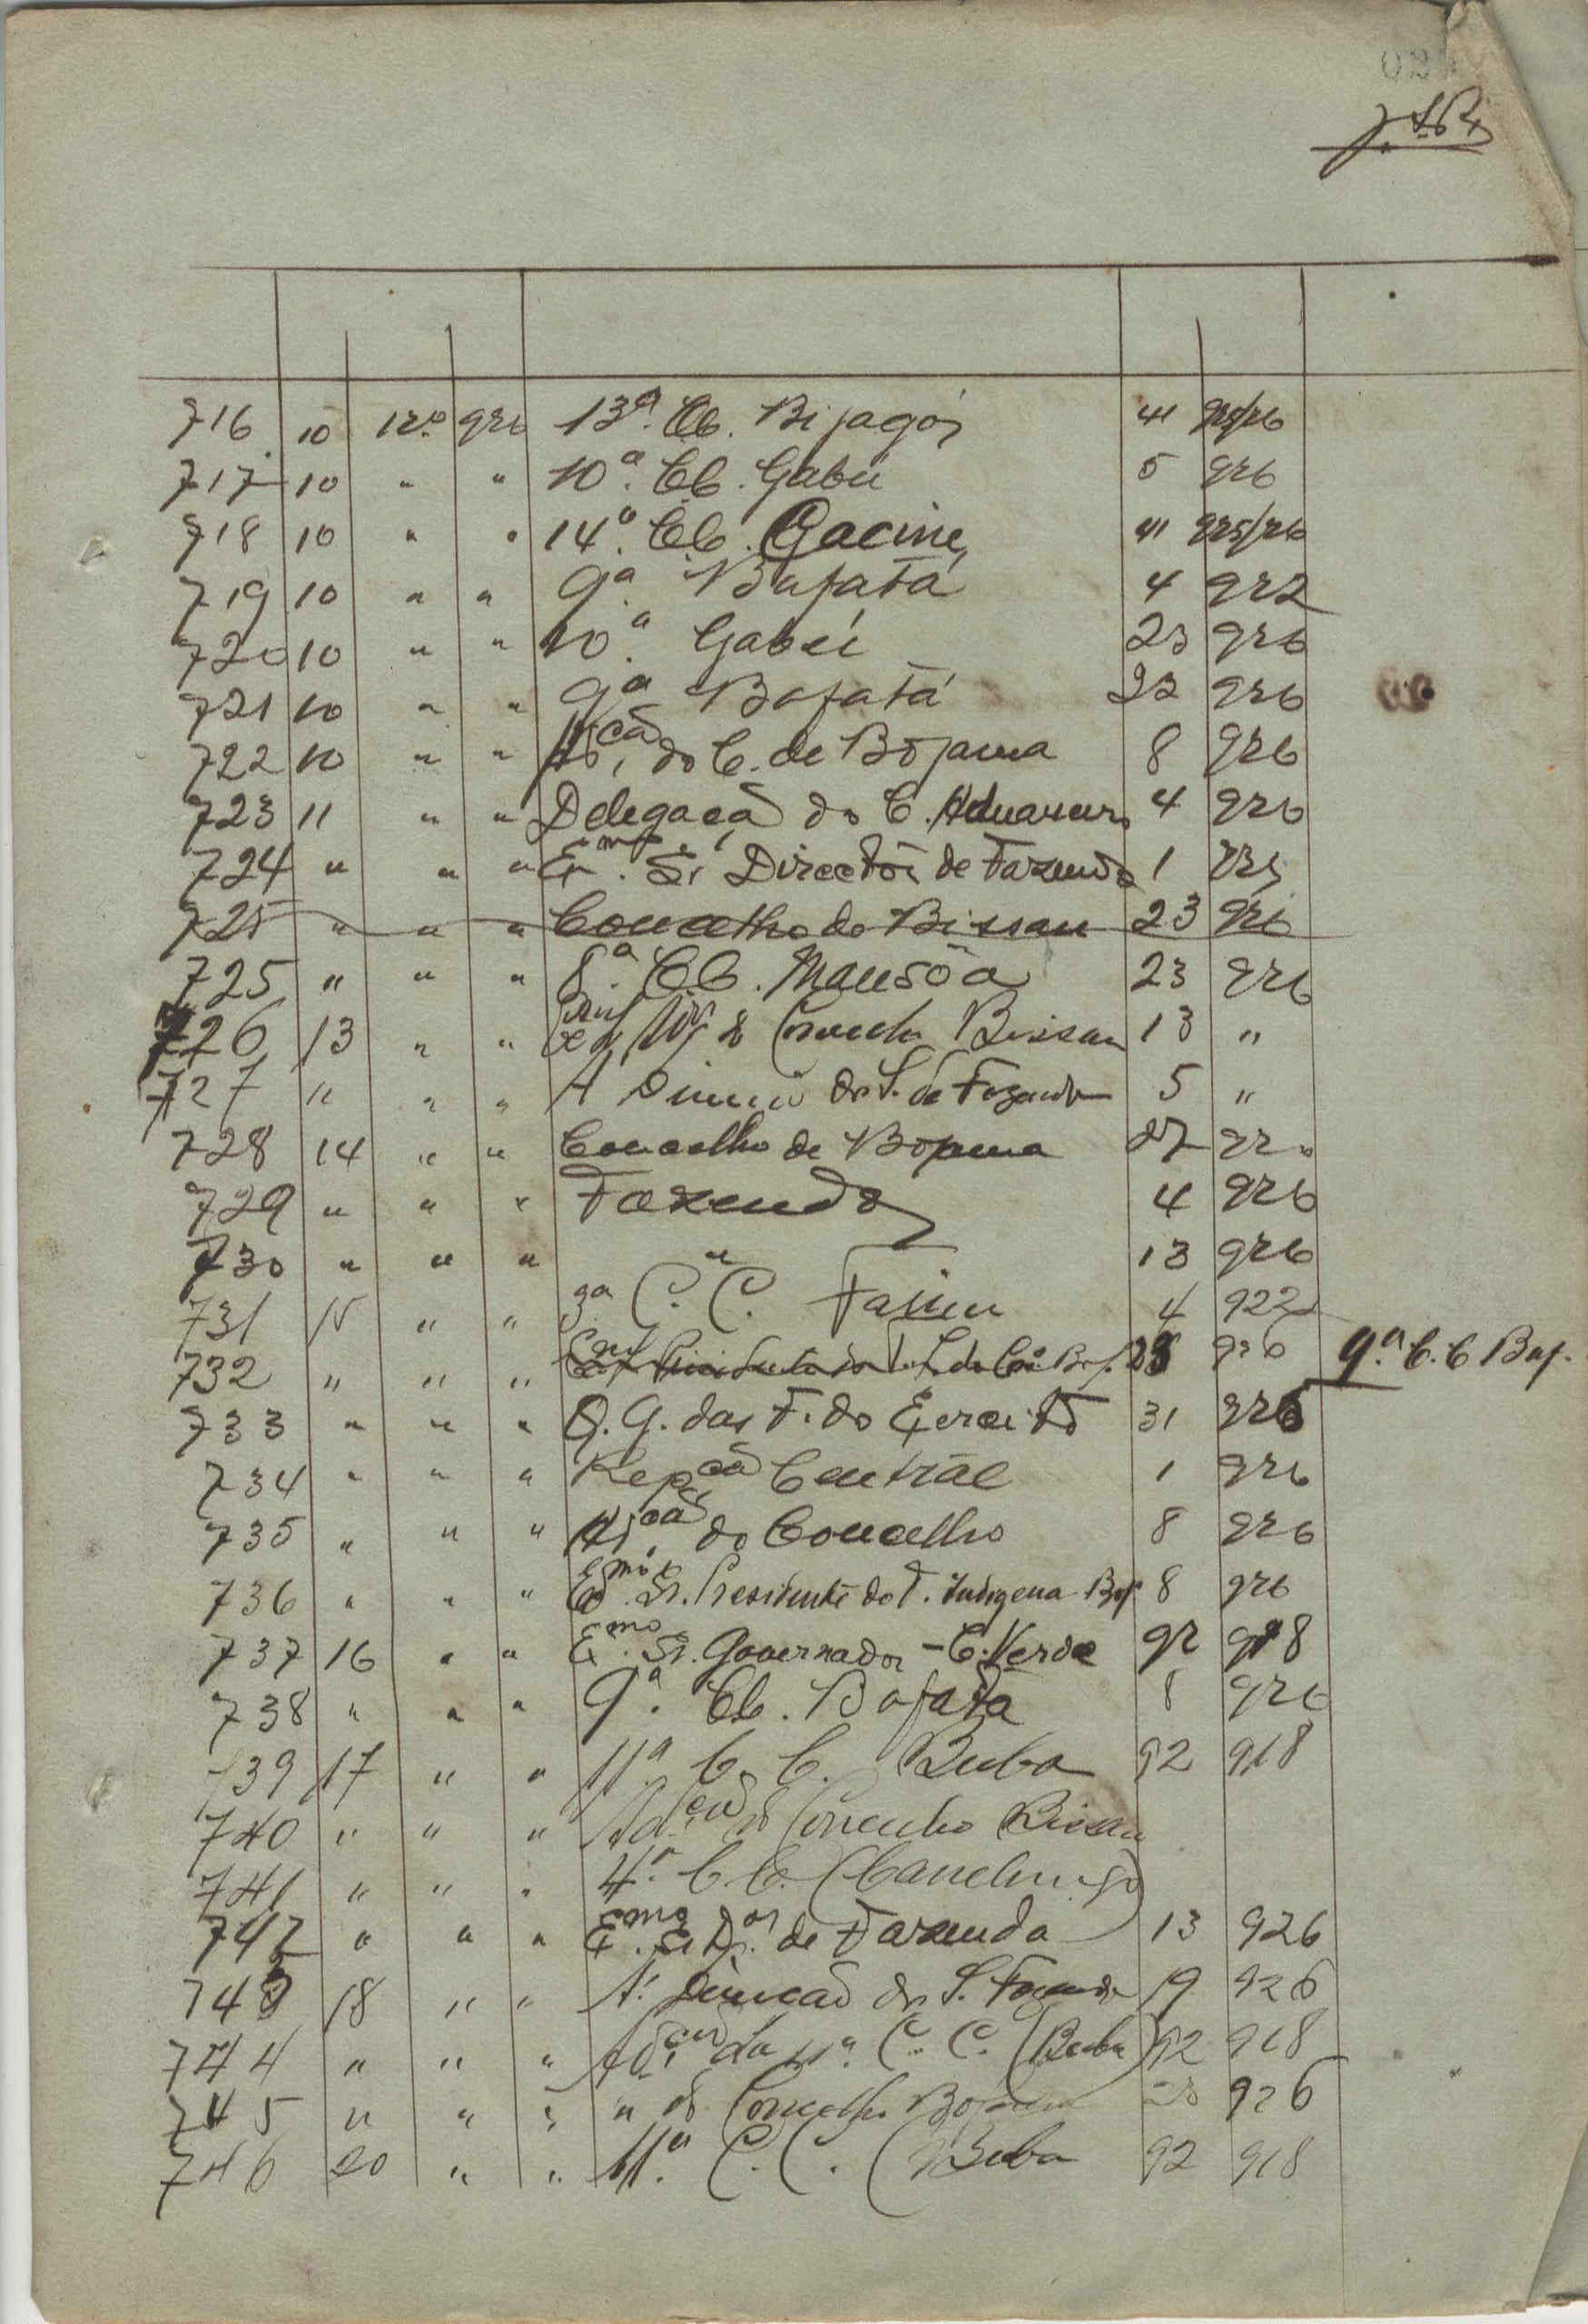 716 10 12.º 926 13ª. CC. Bijagós 41 925/26
717 10 " " 10ª. CC. Gabú 5 926
718 10 " " 14ª. CC. Cacine 41 925/26
719 10 " " 9ª. Bafatá 4 922
720 10 " " 10ª. Gabú 23 926
721 10 " " 9ª Bafatá 22 926
722 10 " " do C. de Bojama 8 926
723 11 " " Delegaçã do C. Aduaneiro 4 926
724 " " " Exmo. Sr. Director de Fazenda 1
725 " " " Concelho de Bissau 23 926
725 " " " 8ª. CC. Mansôa 23 926
726 13 " " Bissau 13 "
727 " " " A de Fazenda 5 "
728 14 " " Concelho de Bojama 27
729 " " " Fazenda 4 926
730 " " " " 13 926
731 15 " " 3ª C. C. Farim 4 922
732 " " " 926 9.ª C. C Baf.
733 " " " Q. G. das F. do Exercito 31 926
734 " " " Repçã Central 1 926
735 " " " do Concelho 8 926
736 " " " Exmo. Sr. Presidente do T. Indigena Baf 8 926
737 16 " " Exmo. Sr. Governador - C. Verde 92 918
738 " " " 9ª. CC. Bafatá 8 926
739 17 " " 11ª C. C. Buba 92 918
740 " " " Concelho Bissau
741 " " " 4ª. C. C. (Canchungo)
742 " " " Exmo. Sr. Dor. de Fazenda 13 926
743 18 " " Á Direcção 19 926
744 " " " da 11ª. C. C. (Buba) 92 918
745 " " " " Concelho Bojama 926
746 20 " " 11ª. C. C. (Buba 92 918